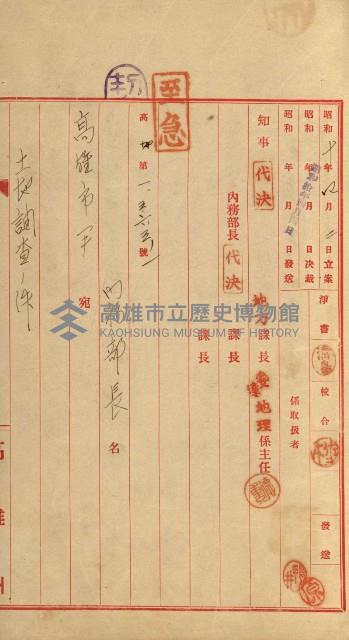 至急
昭和十年 月 日立案
昭和 年 月 日決裁
昭和 年 月 日發送
淨書
校合
發送
係取扱者
知事
代決
內務部長
代決
地方課長
課長
課長
地理係主任
高 第一 號
內務部長名
高雄市尹宛
土地調查ノ件
高雄州
高雄市立歷史博物館
KAOHSIUNG MUSEUM OF HISTORY